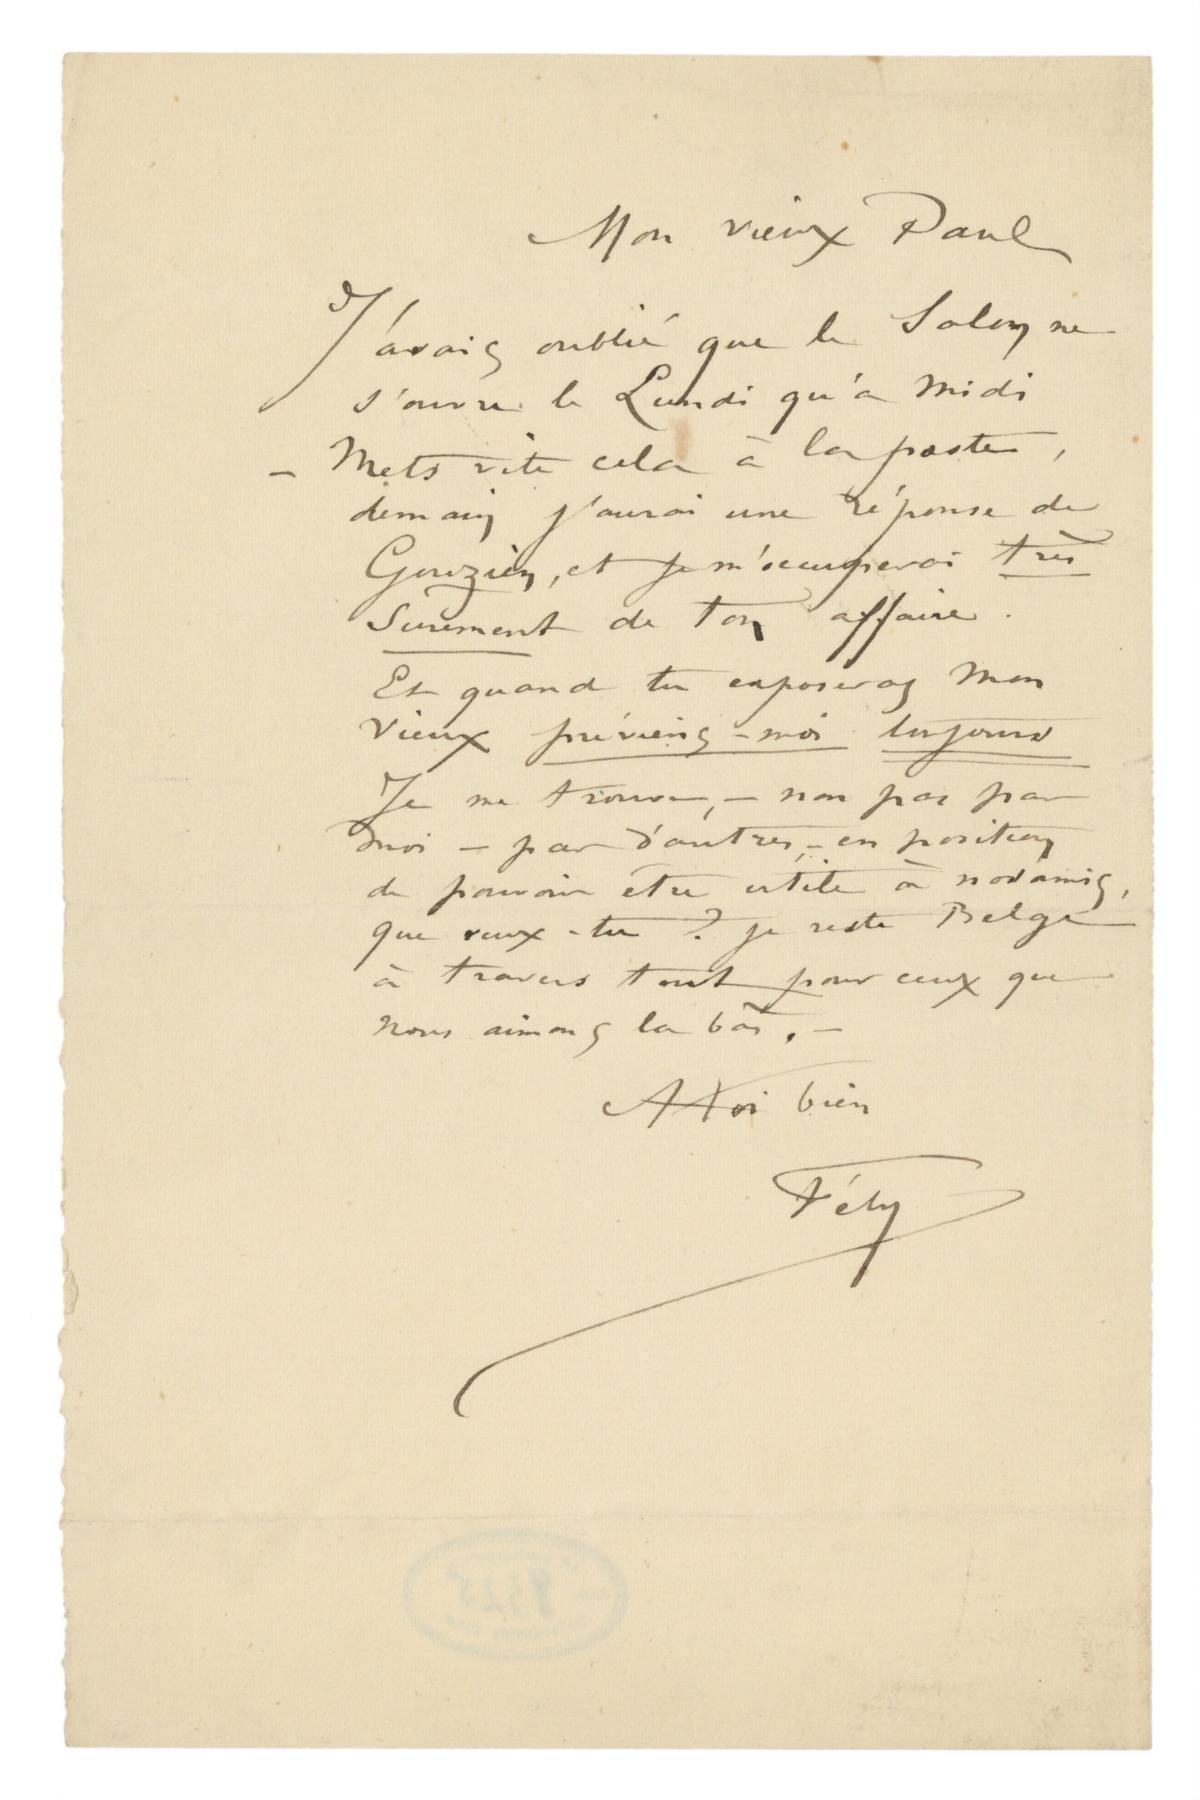 Mon vieux Paul
J'avais oublié que le Salon ne
s'ouvre le Lundi qu'à Midi
– Mets vite cela à la poste,
demain j'aurai une réponse de
Gouzien, et je m'occuperai très
Surement de ton affaire.
Et quand tu exposeras mon
vieux préviens-moi toujours
Je me trouve, – non pas par
moi – par d'autres, – en position
de pouvoir être utile à nos amis,
que veux-tu ? je reste Belge
à travers tout pour ceux que
nous aimons la bàs. –
A toi bien
Fély